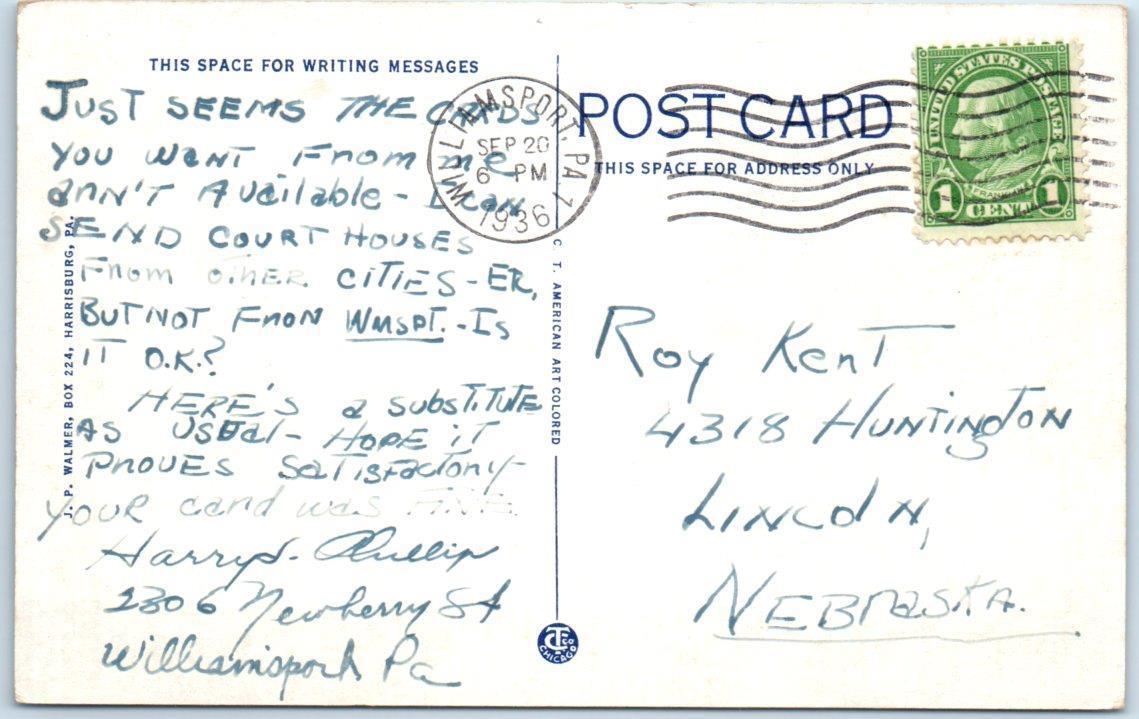 THIS SPACE FOR WRITING MESSAGES
JUST SEEMS THE CARDS
YOU WANT FROM me
aRN'T AVailable - I can
SEND COURT HOUSES
From OTHER CITIES - ER,
BUT NOT FROM WMSPT. - Is
IT O.K.?
HERE'S a SUBSTITUTE
AS USUal - HOPE iT
PROVES SaTISFacTORY
YOUR card was FINE
Harry S.
2306 Newberry St
Williamsport Pa
J. P. WALMER, BOX 224, HARRISBURG, PA.
C. T. AMERICAN ART COLORED
CT CO
CHICAGO
WILLIAMSPORT, PA. 1
SEP 20
6 PM
1936
POST CARD
THIS SPACE FOR ADDRESS ONLY
UNITED STATES POSTAGE
FRANKLIN
1 CENT 1
Roy KenT
4318 HUNTINgTON
LINCOLN,
NEBRASKA.